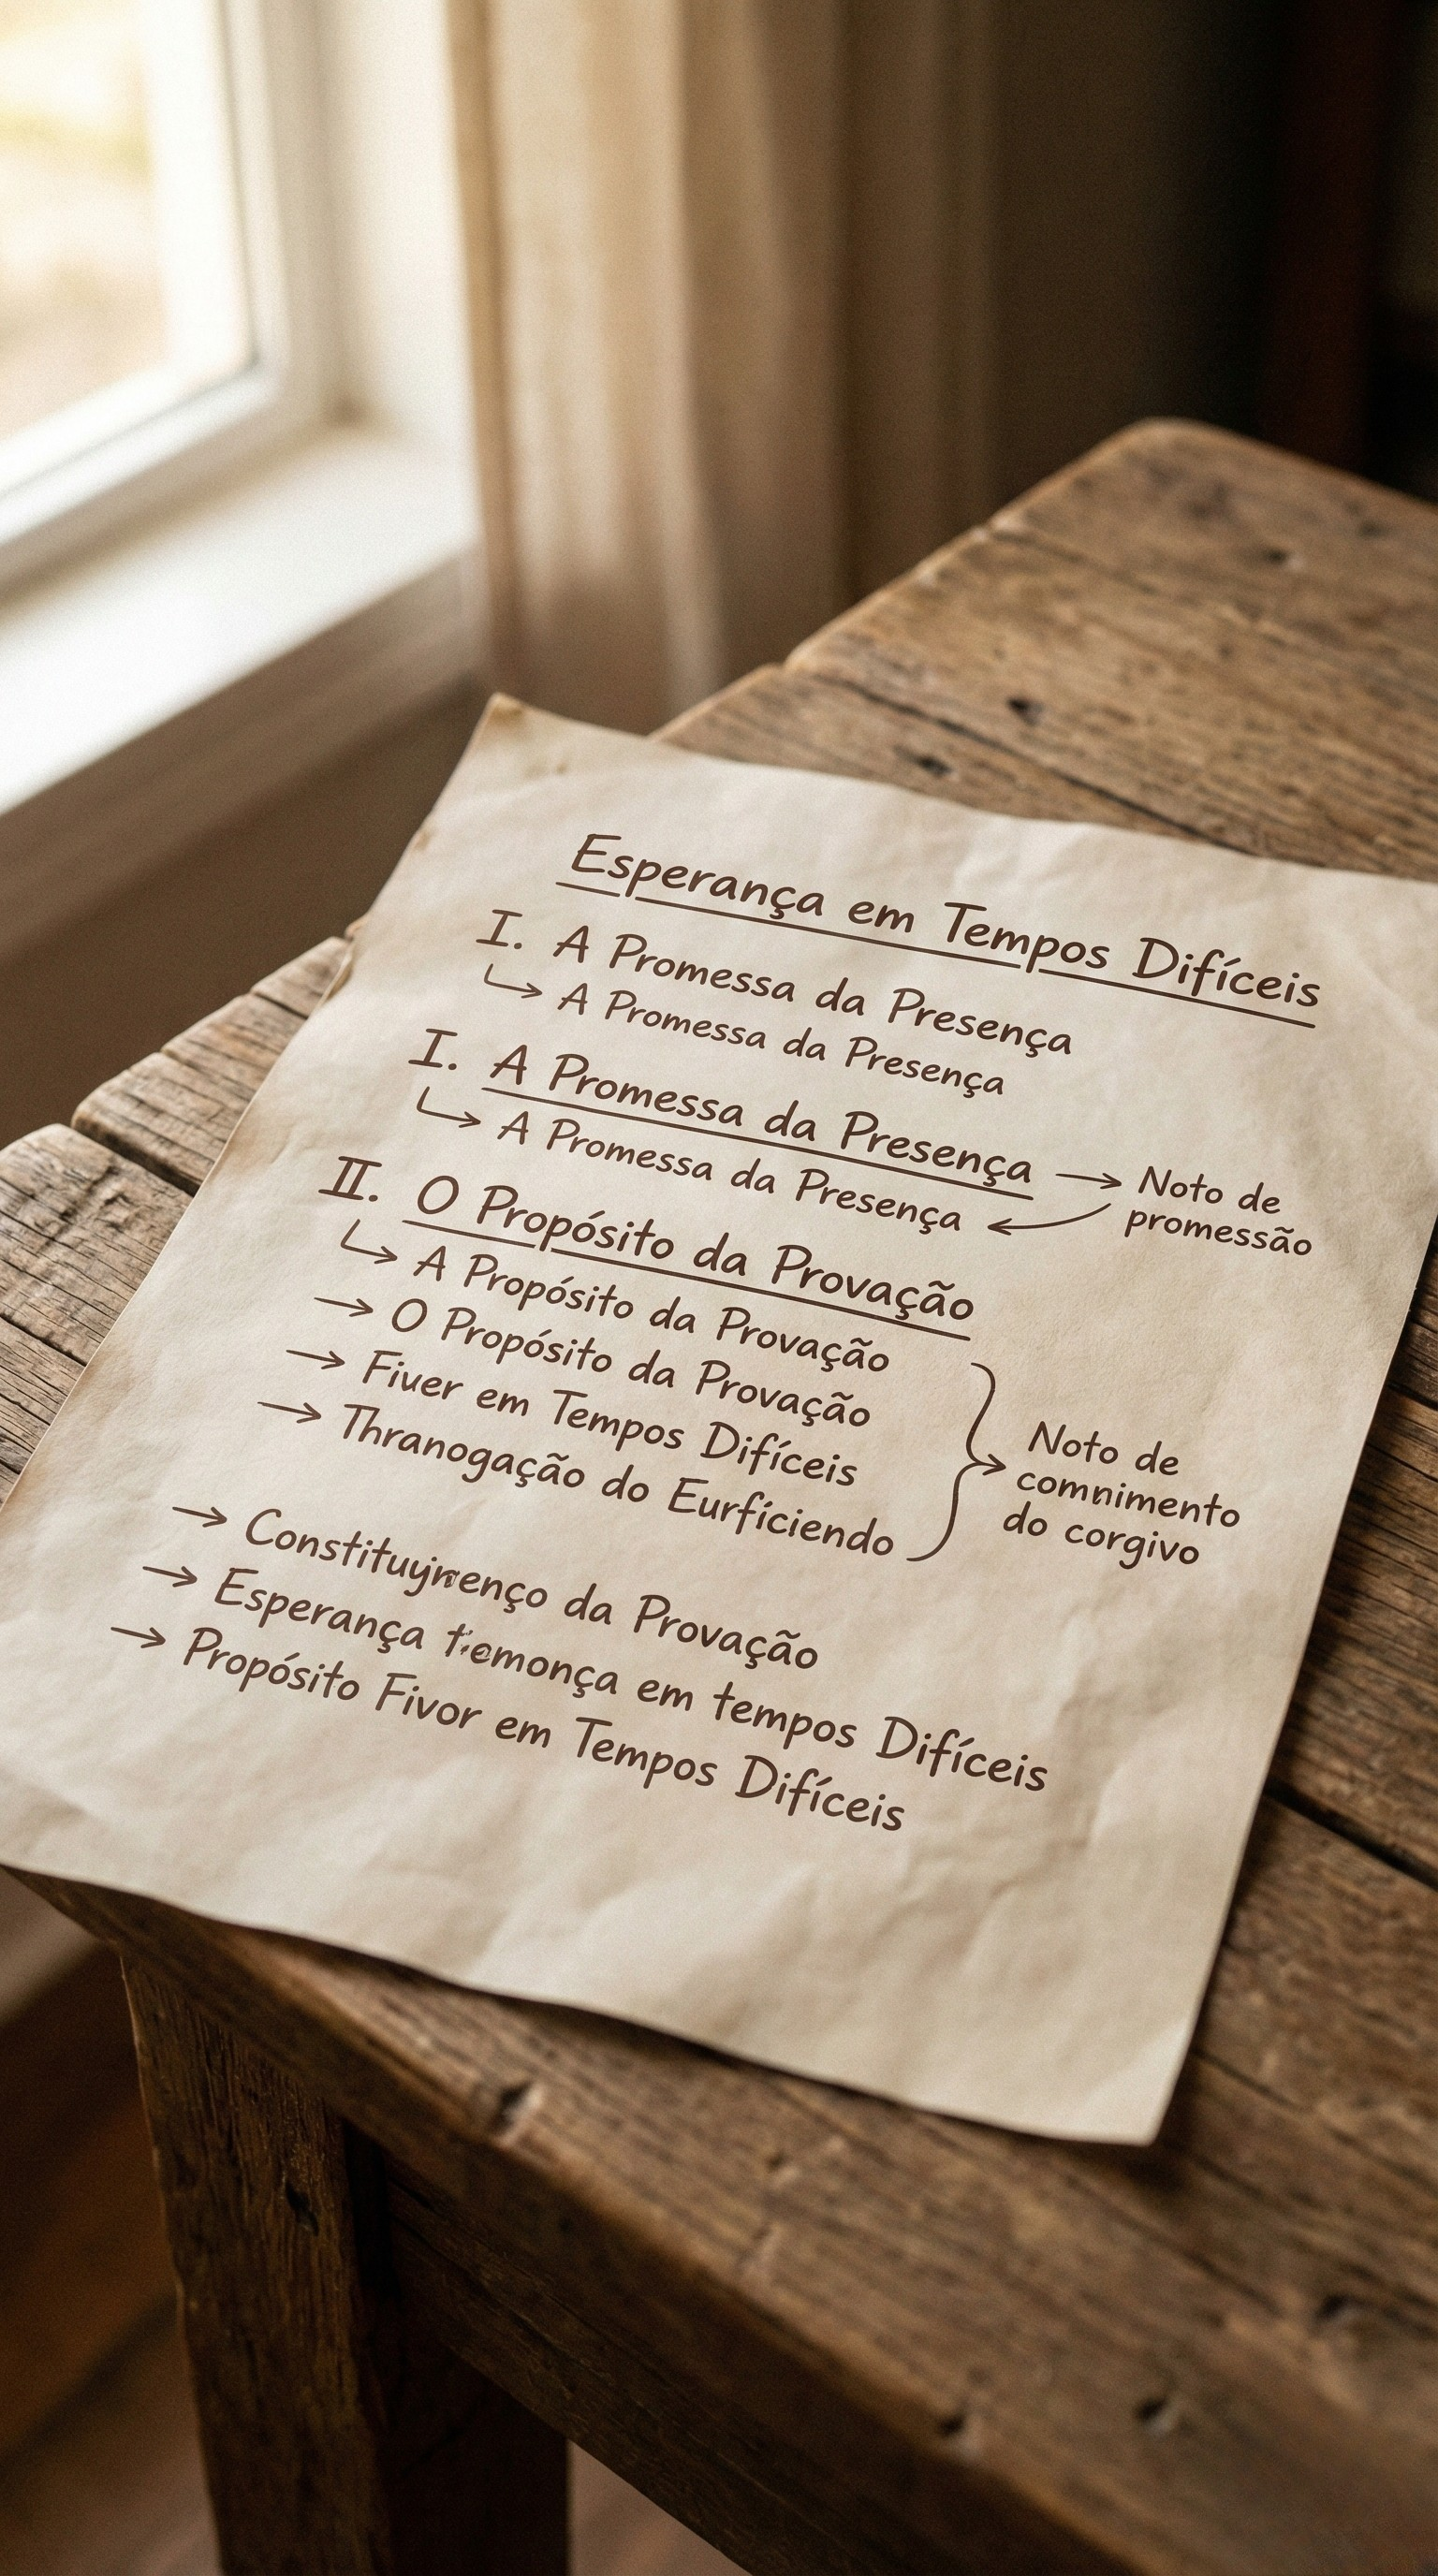 Esperança em Tempos Difíceis
I. A Promessa da Presença
↳ A Promessa da Presença
I. A Promessa da Presença
↳ A Promessa da Presença
→ Noto de
promessão
II. O Propósito da Provação
↳ A Propósito da Provação
→ O Propósito da Provação
→ Fiver em Tempos Difíceis
→ Thranogação do Eurfíciendo
→ Noto de
comnimento
do corgivo
→ da Provação
→ Esperança em tempos Difíceis
→ Propósito Fivor em Tempos Difíceis